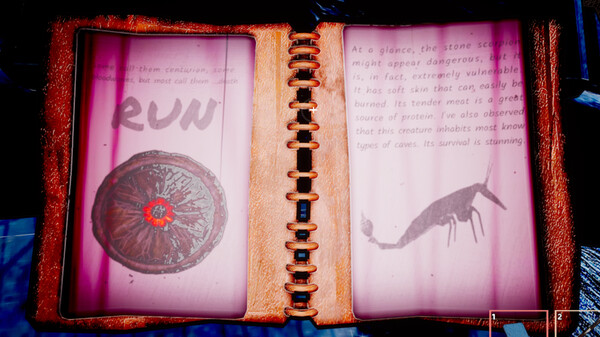 call them centurion, some
but most call them
RUN
At a glance, the stone scorpion
might appear dangerous, but it
is, in fact, extremely vulnerable.
It has soft skin that can easily be
burned. Its tender meat is a great
source of protein. I've also observed
that this creature inhabits most know
types of caves. Its survival is stunning.
1
2